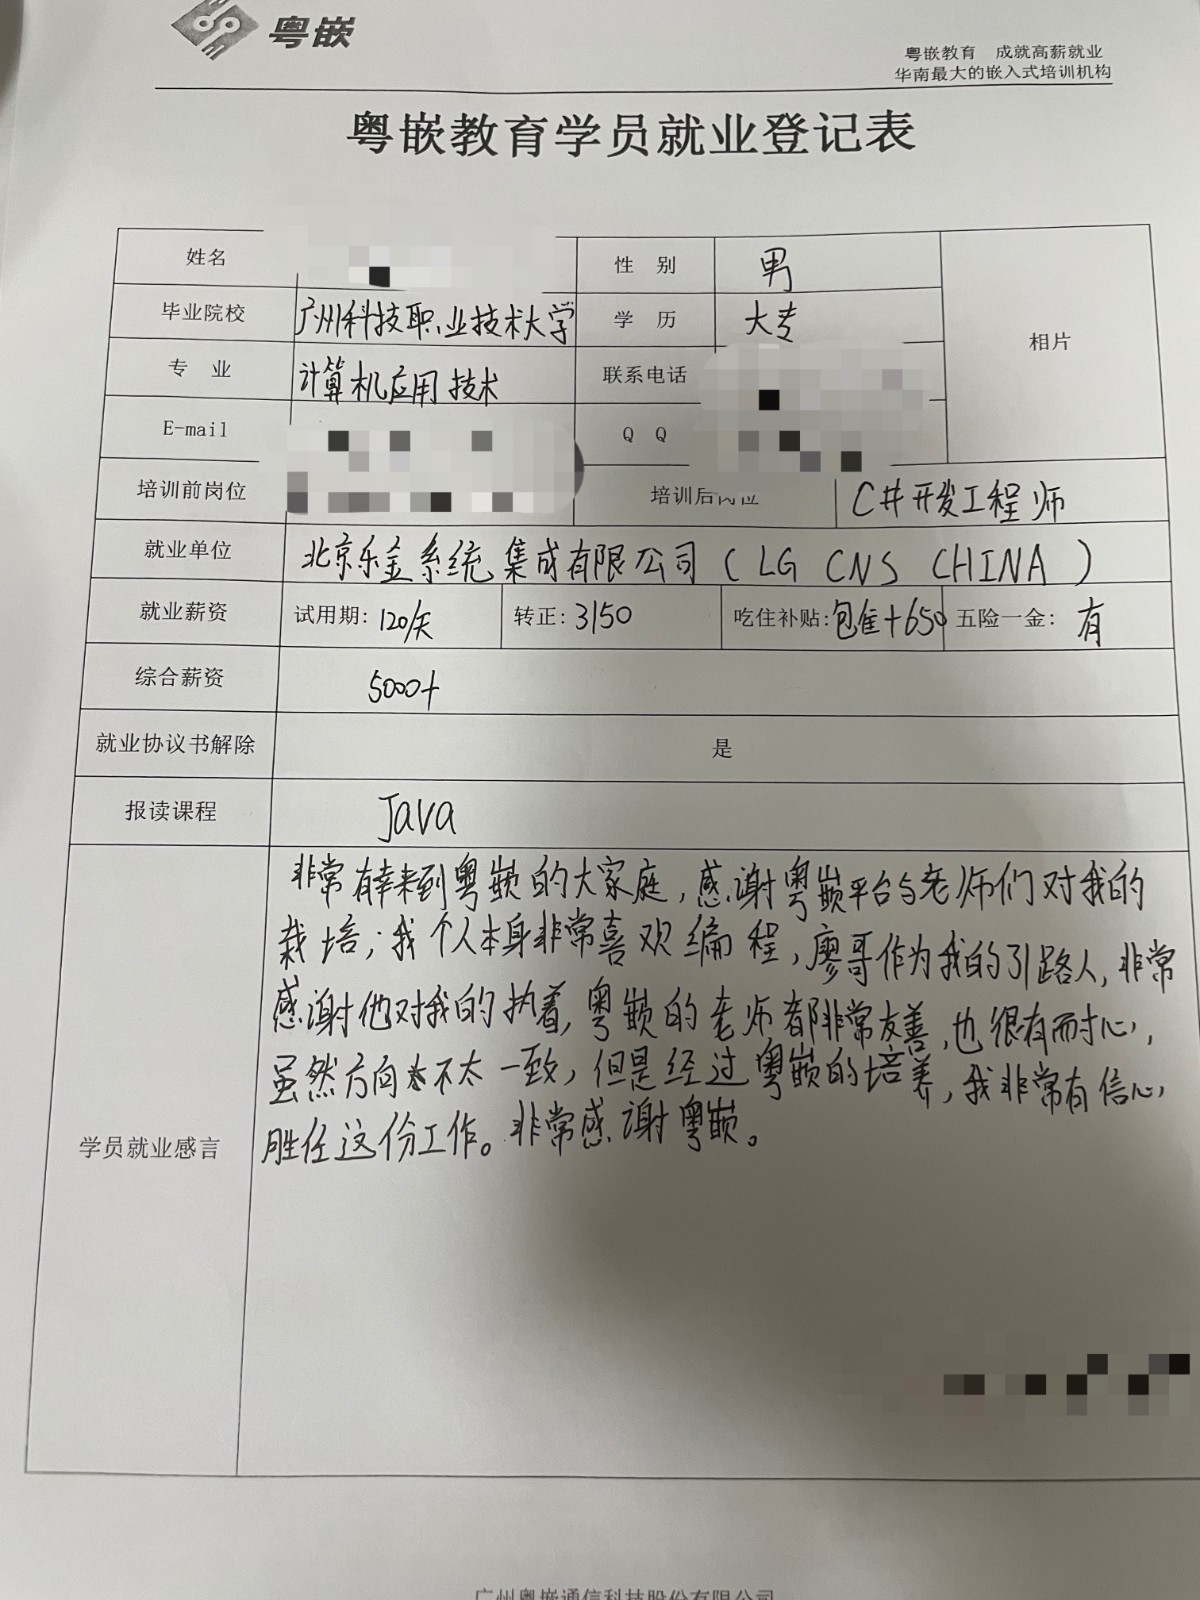 粤嵌
粤嵌教育 成就高薪就业
华南最大的嵌入式培训机构
粤嵌教育学员就业登记表
姓名 性 别 男
毕业院校 广州科技职业技术大学 学 历 大专
相片
专 业 计算机应用技术 联系电话
E-mail Q Q
培训前岗位 培训后岗位 C#开发工程师
就业单位 北京乐金系统集成有限公司(LG CNS CHINA)
就业薪资 试用期: 120/天 转正: 3150 吃住补贴: 包住+650 五险一金: 有
综合薪资 5000+
就业协议书解除 是
报读课程 Java
学员就业感言
非常有幸来到粤嵌的大家庭,感谢粤嵌平台与老师们对我的
栽培;我个人本身非常喜欢编程,廖哥作为我的引路人,非常
感谢他对我的执着,粤嵌的老师都非常友善,也很有耐心,
虽然方向不太一致,但是经过粤嵌的培养,我非常有信心
胜任这份工作。非常感谢粤嵌。
广州粤嵌通信科技股份有限公司